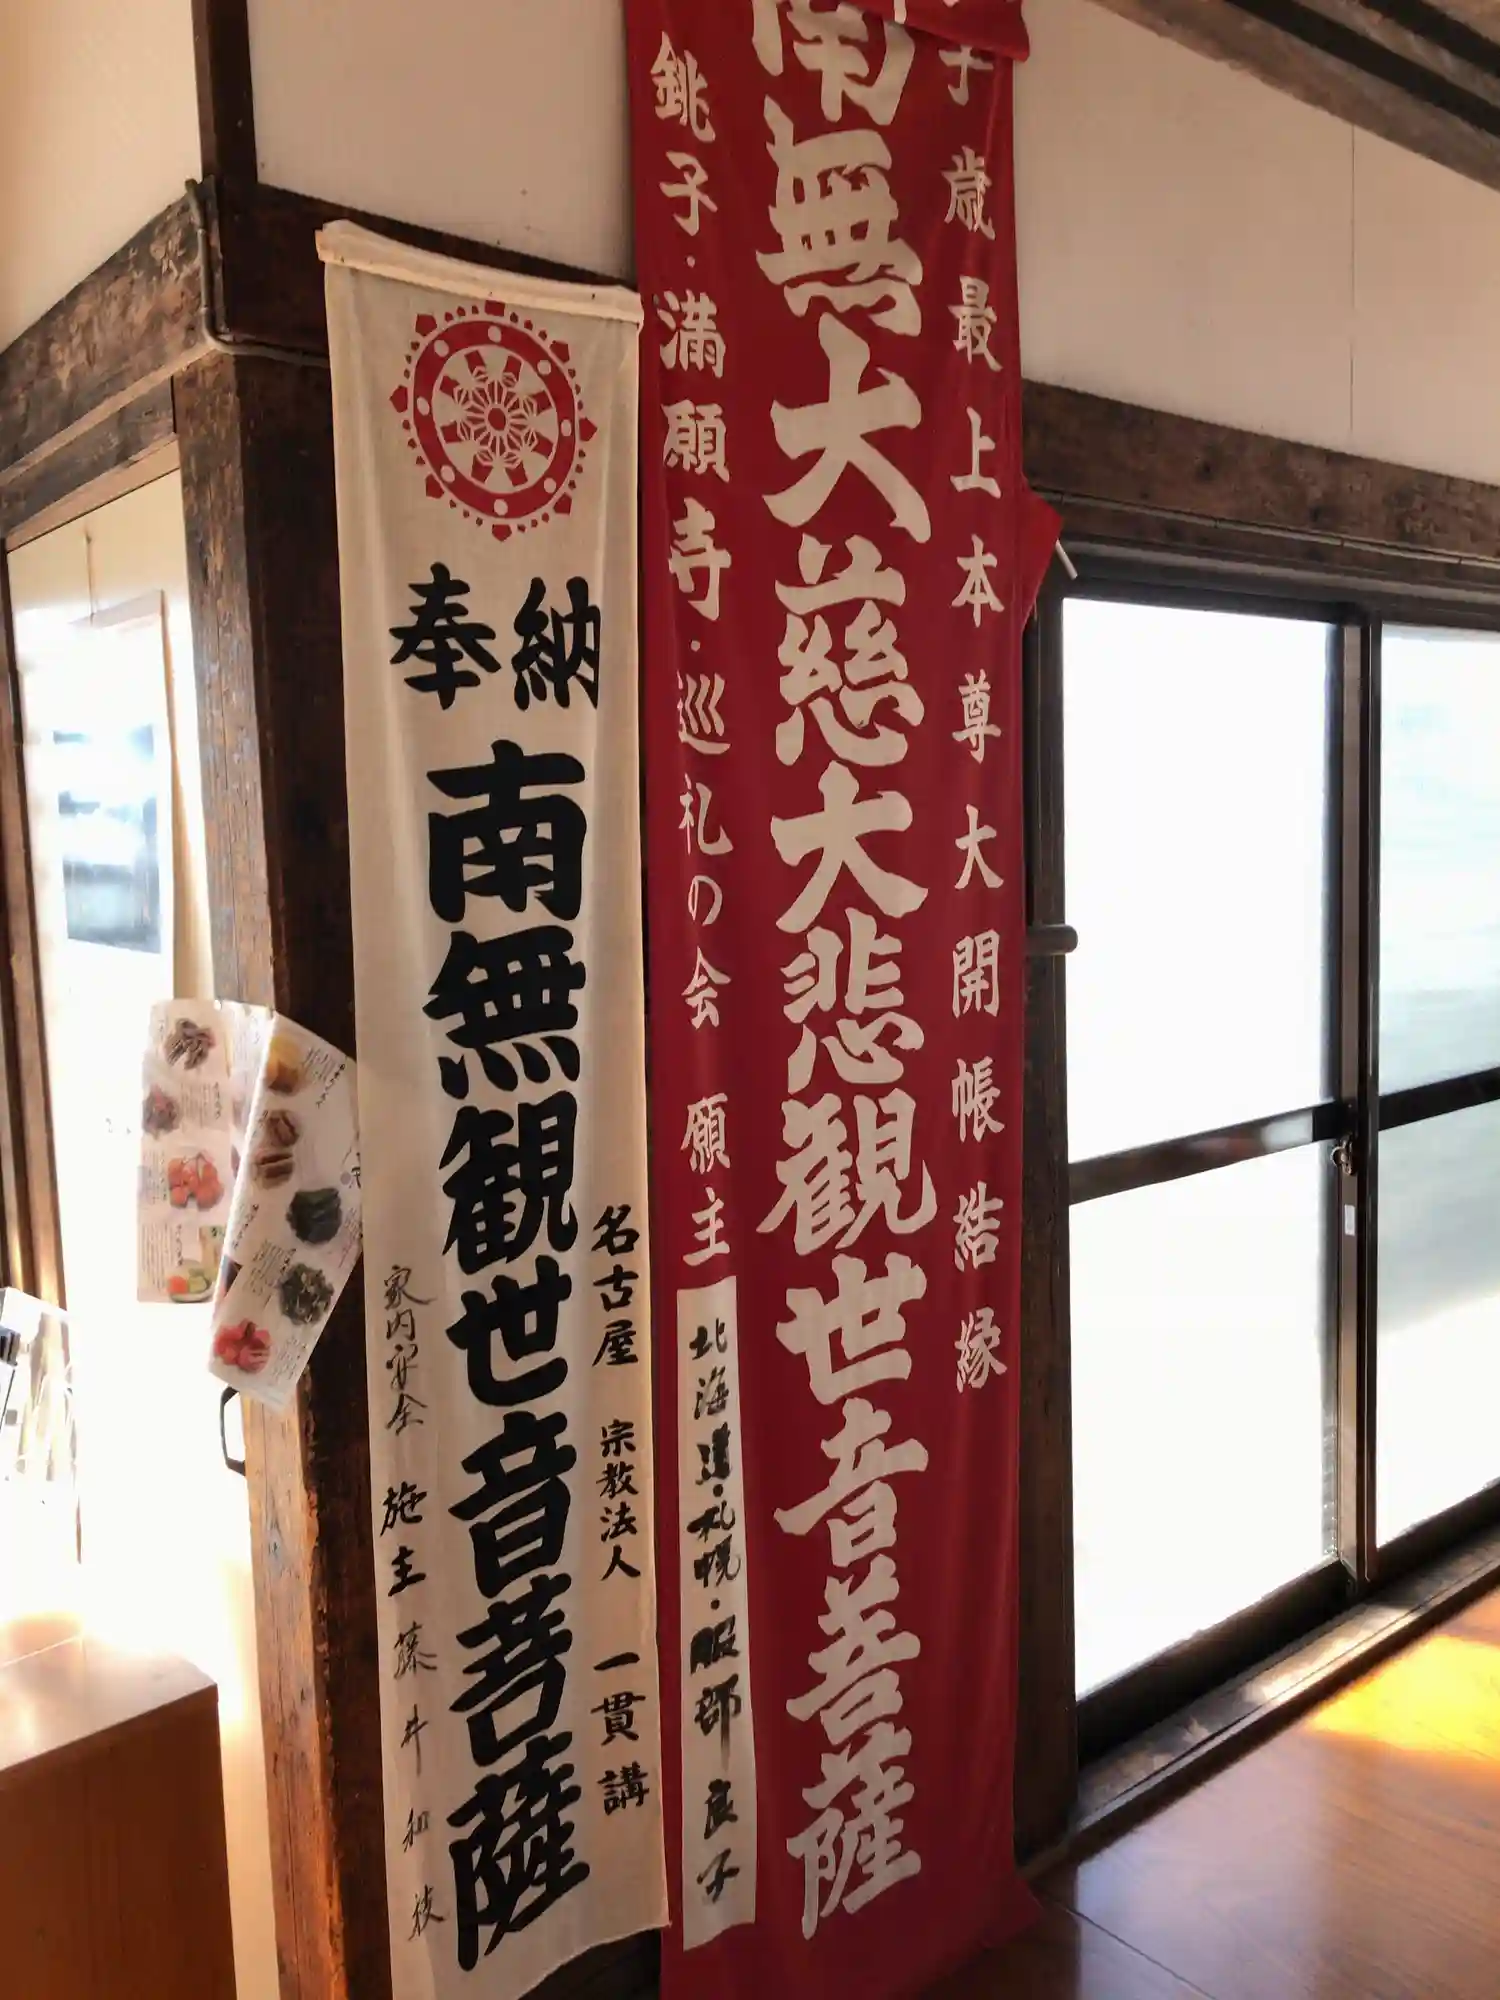 子歳最上本尊大開帳結縁
南無大慈大悲観世音菩薩
銚子・満願寺・巡礼の会 願主
北海道・札幌・服部良子
奉納
名古屋 宗教法人 一貫講
南無観世音菩薩
家内安全 施主 藤井和枝